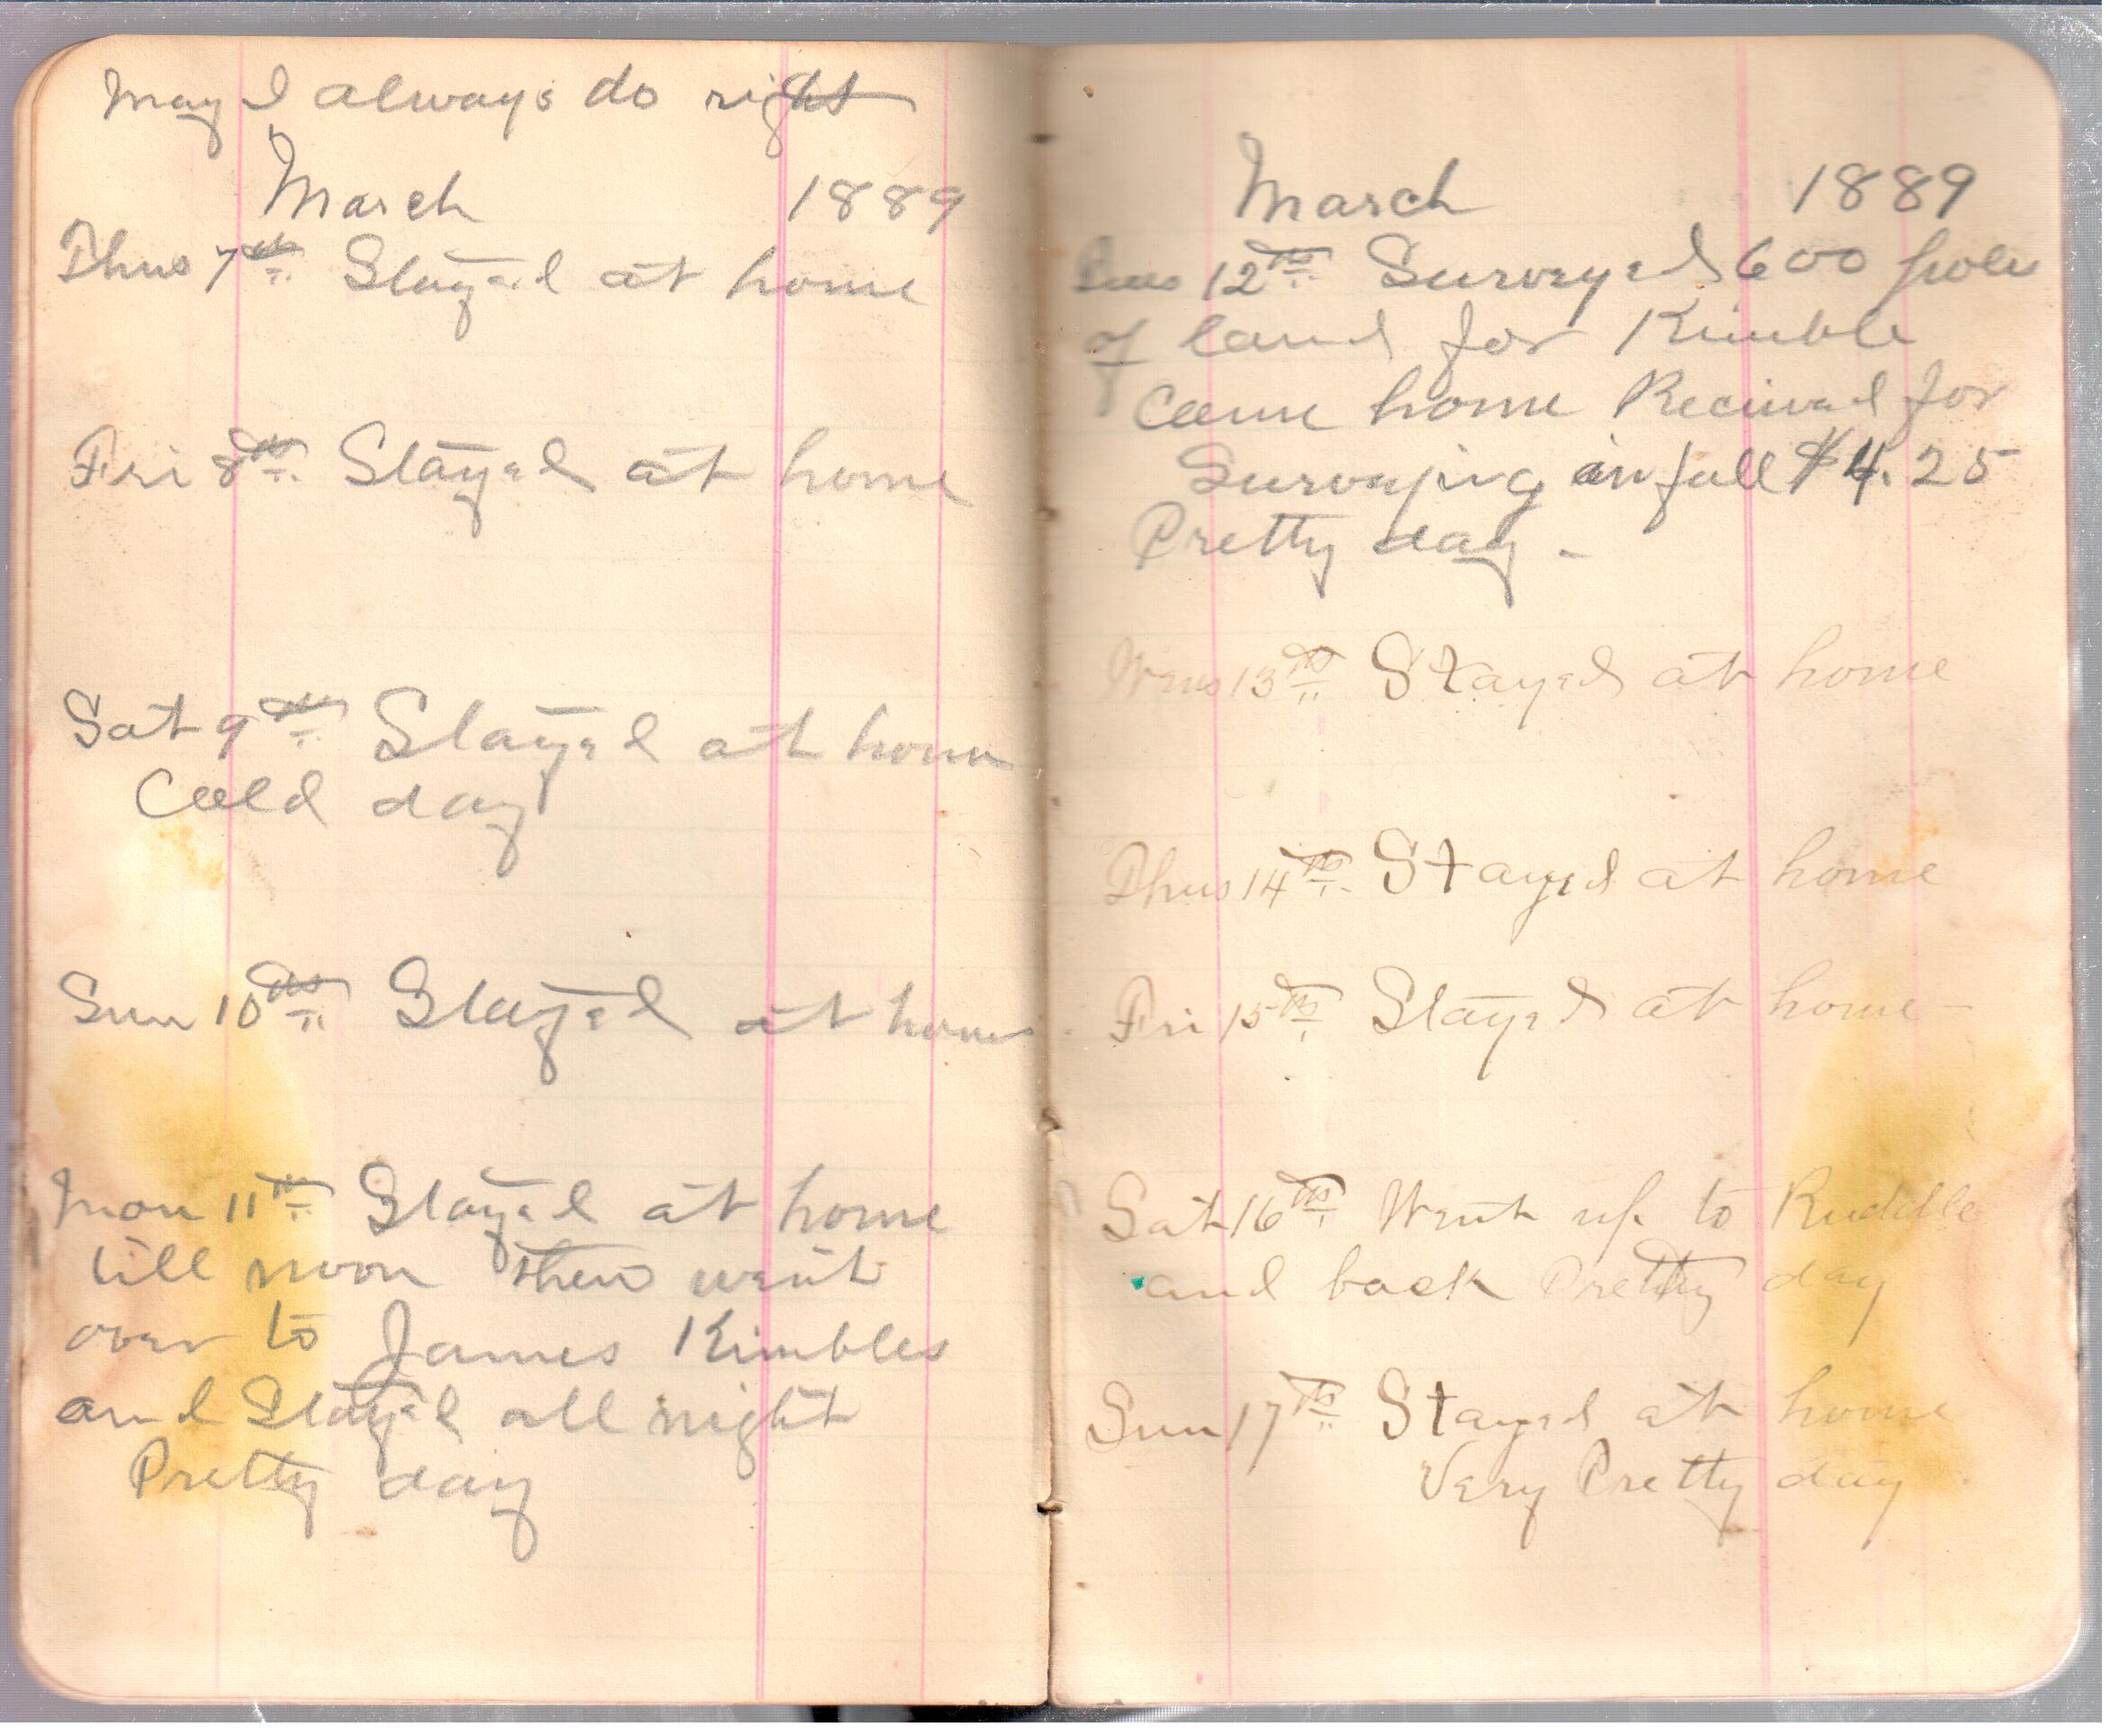 May I always do right
March 1889
Thus 7th Stayed at home
Fri 8th Stayed at home
Sat 9th Stayed at home
Cold day
Sun 10th Stayed at home
Mon 11th Stayed at home
till noon then went
over to James Kimbles
and Stayed all night
Pretty day
March 1889
Tues 12th Surveyed 600 poles
of land for Kimble
Came home Recieved for
Surveying in full $4.25
Pretty day -
Wens 13th Stayed at home
Thus 14th Stayed at home
Fri 15th Stayed at home -
Sat 16th Went up to Ruddle
and back Pretty day
Sun 17th Stayed at home
Very Pretty day